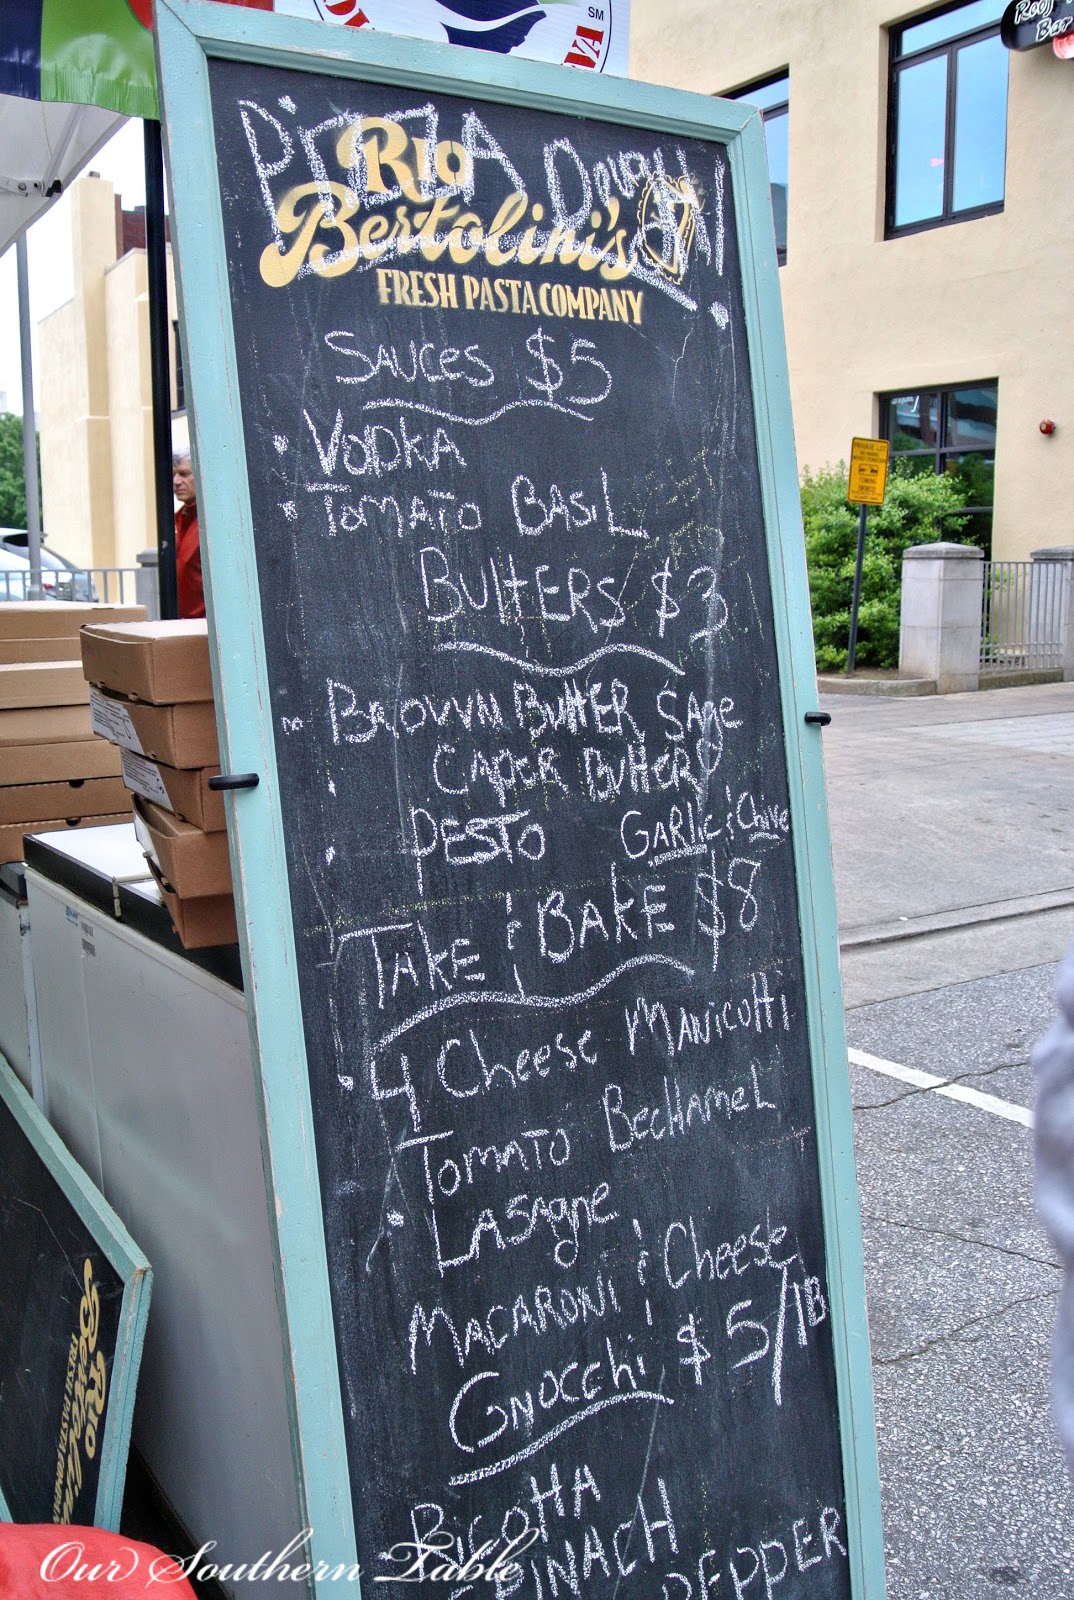 PIZZA DOUGH!
RIO
Bertolini's
FRESH PASTA COMPANY
SAUCES $5
VODKA
TOMATO BASIL
BUttERS $3
BROWN BUTTER SAGE
CAPER BUTTER
PESTO GARLIC & CHIVE
TAKE & BAKE $8
4 Cheese MANICOtti
TOMATO BECHAMEL
LASAGNE
MACARONI & Cheese
GNOCChi $5/lB
RICOTTA
SPINACH
PEPPER
PRIVATE LOT
TOWING
RIO
Bertolini's
FRESH PASTA COMPANY
Our Southern Table